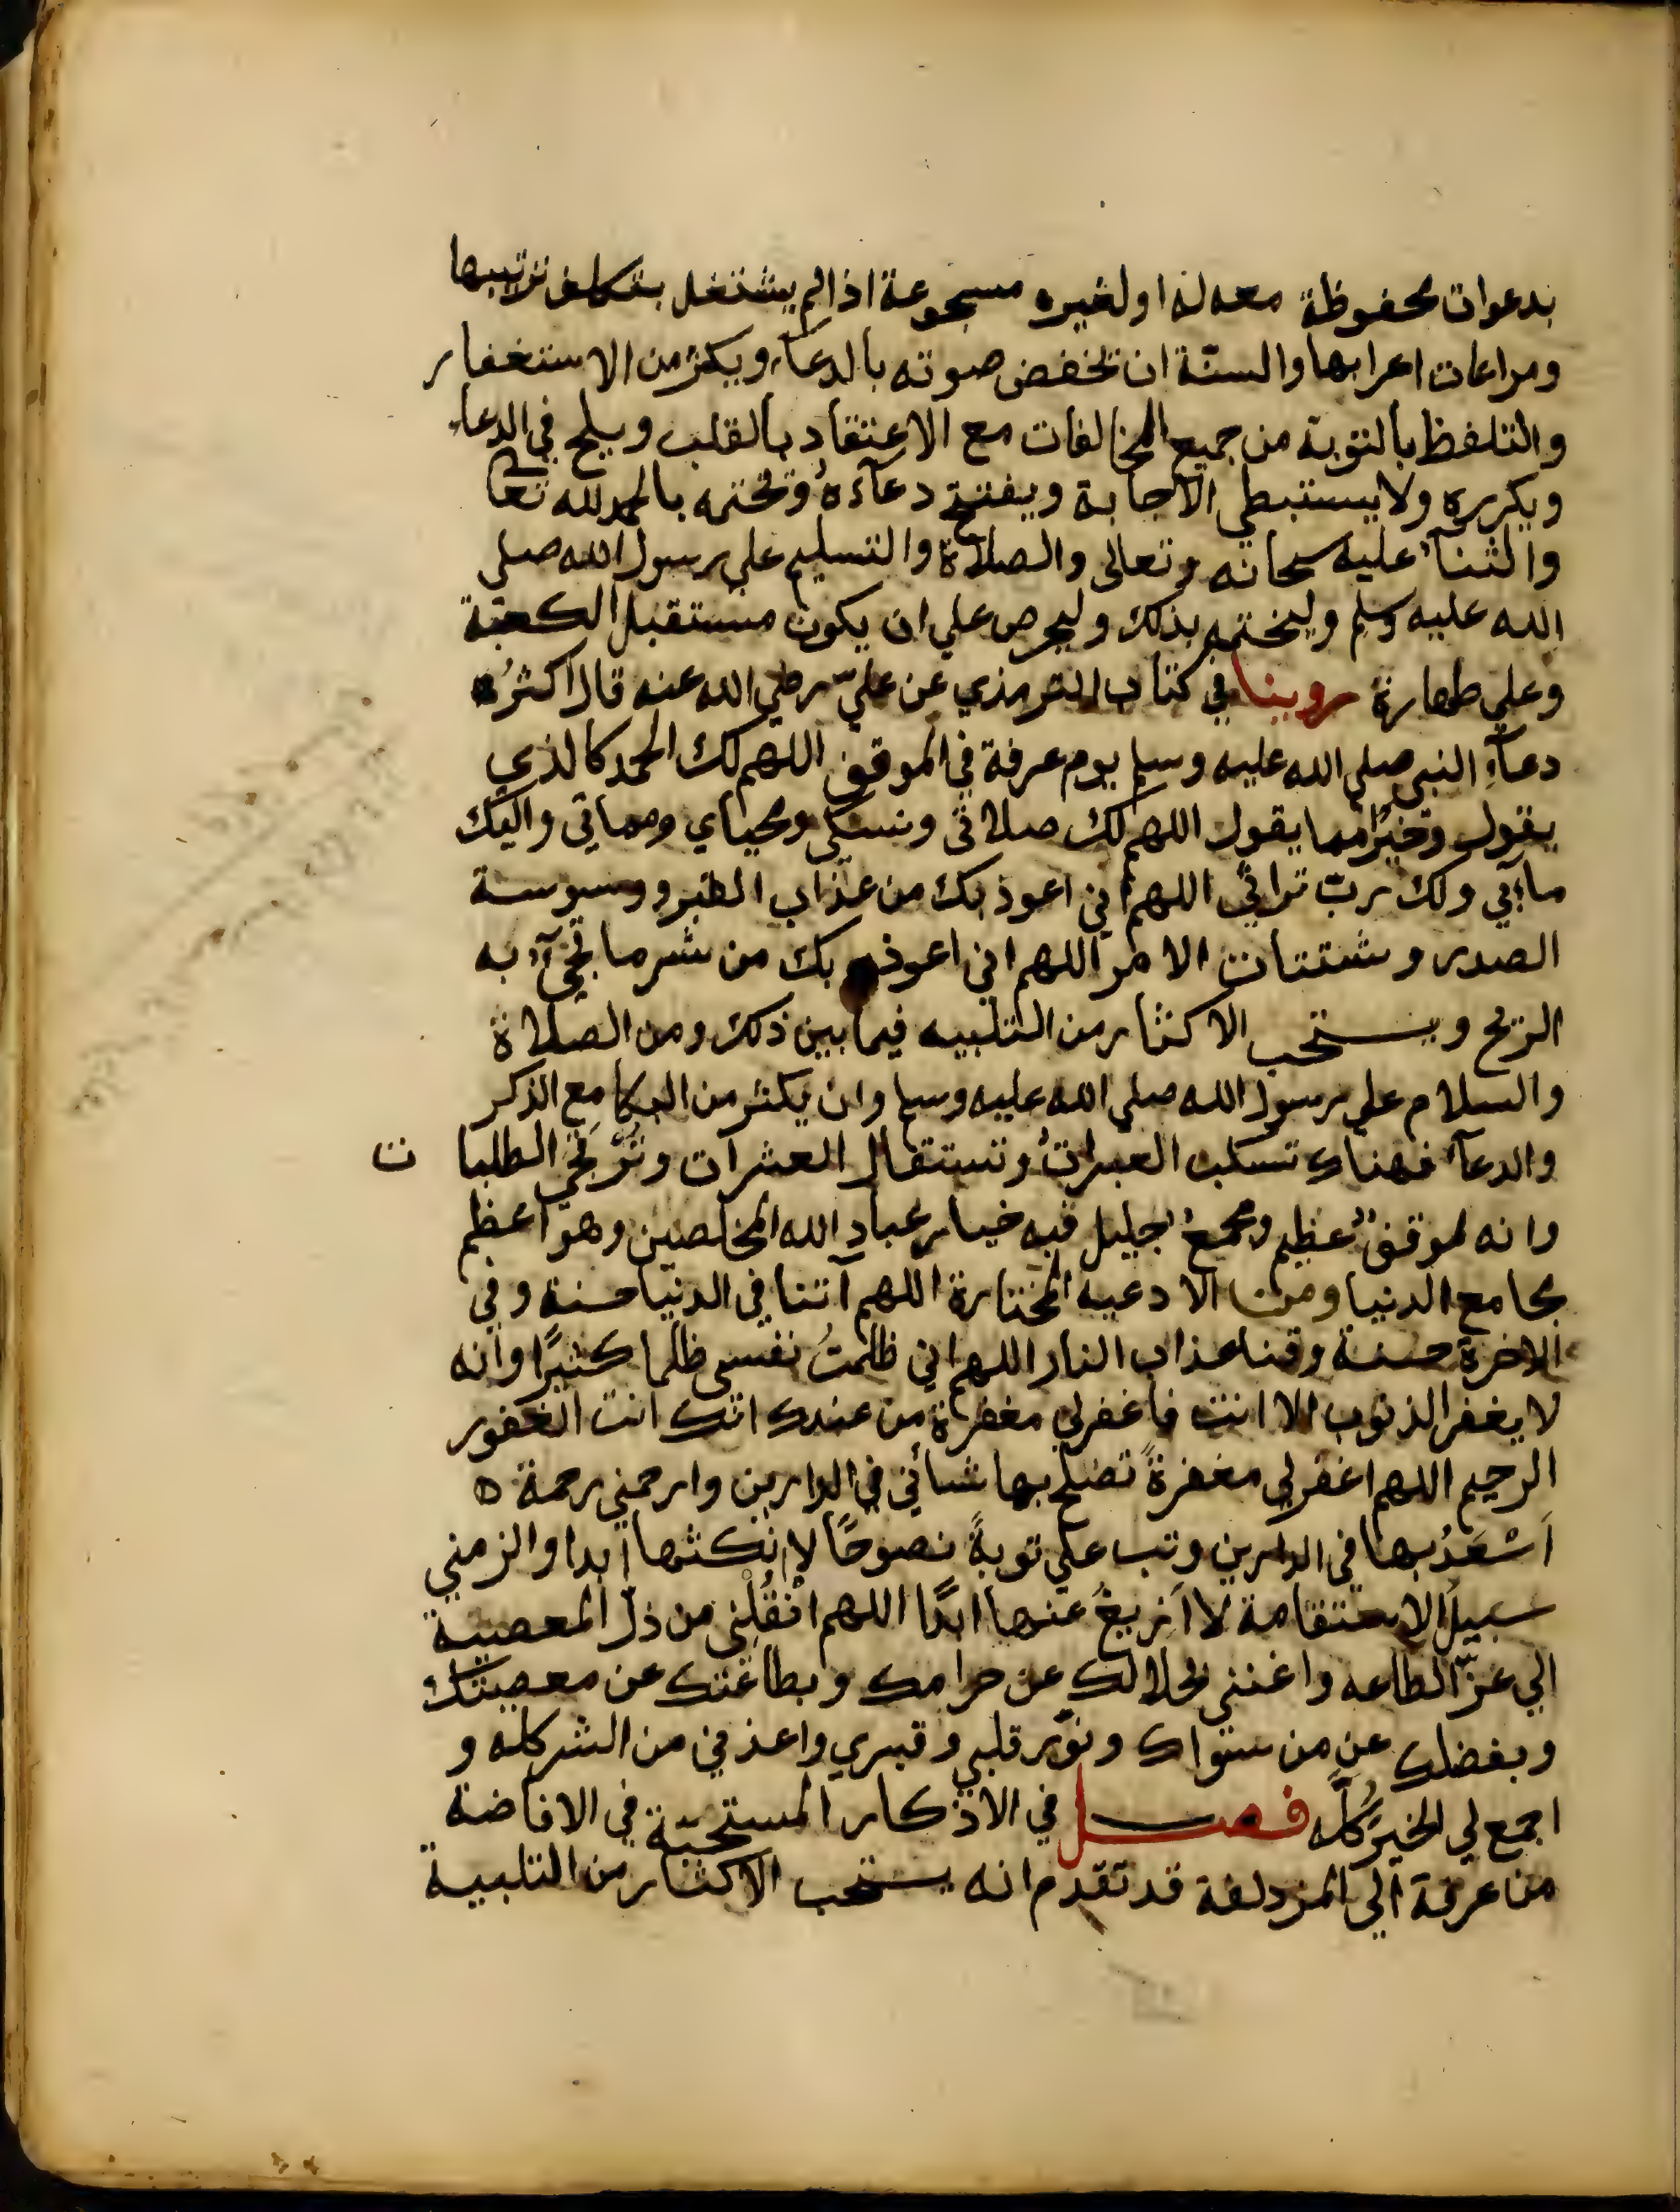 بدعوات محفوظة معه له او لغيره مسجوعة اذا لم يشتغل بتكلف ترتيبها
ومراعات اعرابها والسنّة ان يخفض صوته بالدعآء ويكثر من الاستغفار
والتلفظ بالتوبة من جميع المخالفات مع الاعتقاد بالقلب ويلح في الدعاء
ويكرره ولا يستبطي الاجابة ويفتتح دعآءهُ ويختمه بالحمد لله تعالى
والثنآء عليه سبحانه وتعالى والصلاة والتسليم على رسول الله صلى
الله عليه وسلم وليختمه بذلك وليحرص على ان يكون مستقبل الكعبة
وعلى طهارة روينا في كتاب الترمذي عن عليّ رضي الله عنه قال اكثرُ
دعآءِ النبي صلى الله عليه وسلم يوم عرفة في الموقف اللهم لك الحمد كالذي
يقول وخيرًا مما يقول اللهم لك صلاتى ونسكى ومحياي ومماتي واليك
مآبي ولك ربّ تراثي اللهم اني اعوذ بك من عذاب القبر ووسوسة
الصدر وشتات الامر اللهم اني اعوذ بك من شر ما تجيٓء به
الريح ويستحب الاكثار من التلبيه فيما بين ذلك ومن الصلاة
والسلام على رسول الله صلى الله عليه وسلم وان يكثر من البكا مع الذكر
والدعآء فهناك تسكب العبراتُ وتستقال العثرات وتُرتجى الطلبات
وانه لموقفٌ عظيم ومجمعٌ جليل فيه خيار عباد الله المخلصين وهو اعظم
مجامع الدنيا ومن الادعيه المختارة اللهم آتنا في الدنيا حسنة وفي
الاخرة حسنة وقنا عذاب النار اللهم اني ظلمتُ نفسى ظلما كثيرًا وانه
لا يغفر الذنوب الا انت فاغفرلي مغفرة من عندك انك انت الغفور
الرحيم اللهم اغفرلي مغفرةً تصلح بها شأني في الدارين وارحمني رحمة ه
اَسْعَدُ بها في الدارين وتب على توبةً نصوحًا لا انكثها ابدا والزمني
سبيلَ الاستقامة لا اَزيغُ عنها ابدًا اللهم انقُلْنى من ذلّ المعصية
الي عزّ الطاعه واغننى بحلالك عن حرامك وبطاعتك عن معصيتك
وبفضلك عن من سواك ونوّر قلبي وقبري واعذني من الشر كله و
اجمع لي الخيرَ كُلّه فصل في الاذكار المستحبّة في الافاضة
من عرفة الي المزدلفة قد تقدم انه يستحب الاكثار من التلبية